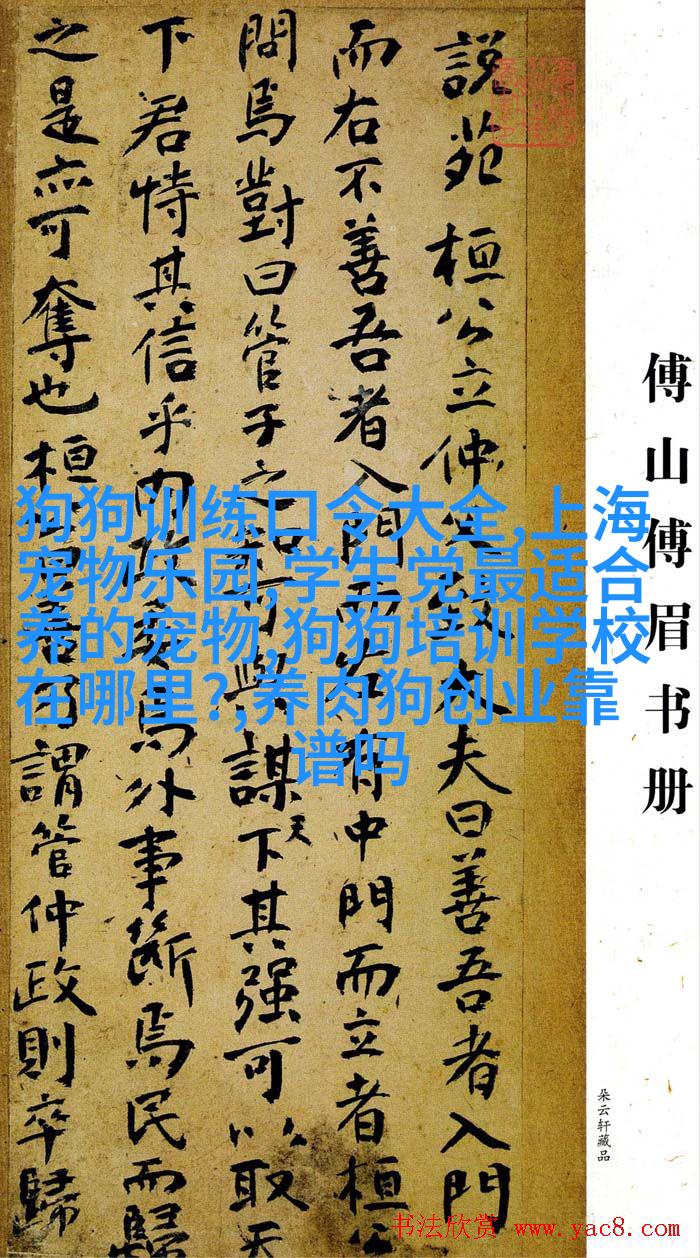 傅山傅眉书册
朵云轩藏品
説苑 桓公立仲父致大夫曰善吾者入門
而右不善吾者入門而左有中門而立者桓公
問焉對曰管子之知可與謀天下其强可以取天
下君恃其信乎内政委焉外事斷焉民而歸
之是亦可奪也桓公曰善乃謂管仲政則卒歸
狗狗训练口令大全,上海
宠物乐园,学生党最适合
养的宠物,狗狗培训学校
在哪里?,养肉狗创业靠
谱吗
书法欣赏 www.yac8.com